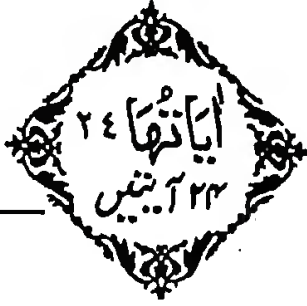 اٰيَاتُهَا ٢٤
۲۴ آیتیں